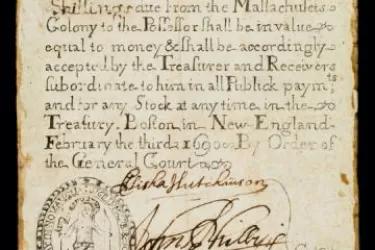 Shillings due from the Massachusets
Colony to the Possessor shall be in value
equal to money & shall be accordingly
accepted by the Treasurer and Receivers
subordinate to him in all Publick paymts
and for any Stock at any time in the
Treasury. Boston in New-England
February the third 1690. By Order of
the General Court
Elisha Hutchinson
John Phillips